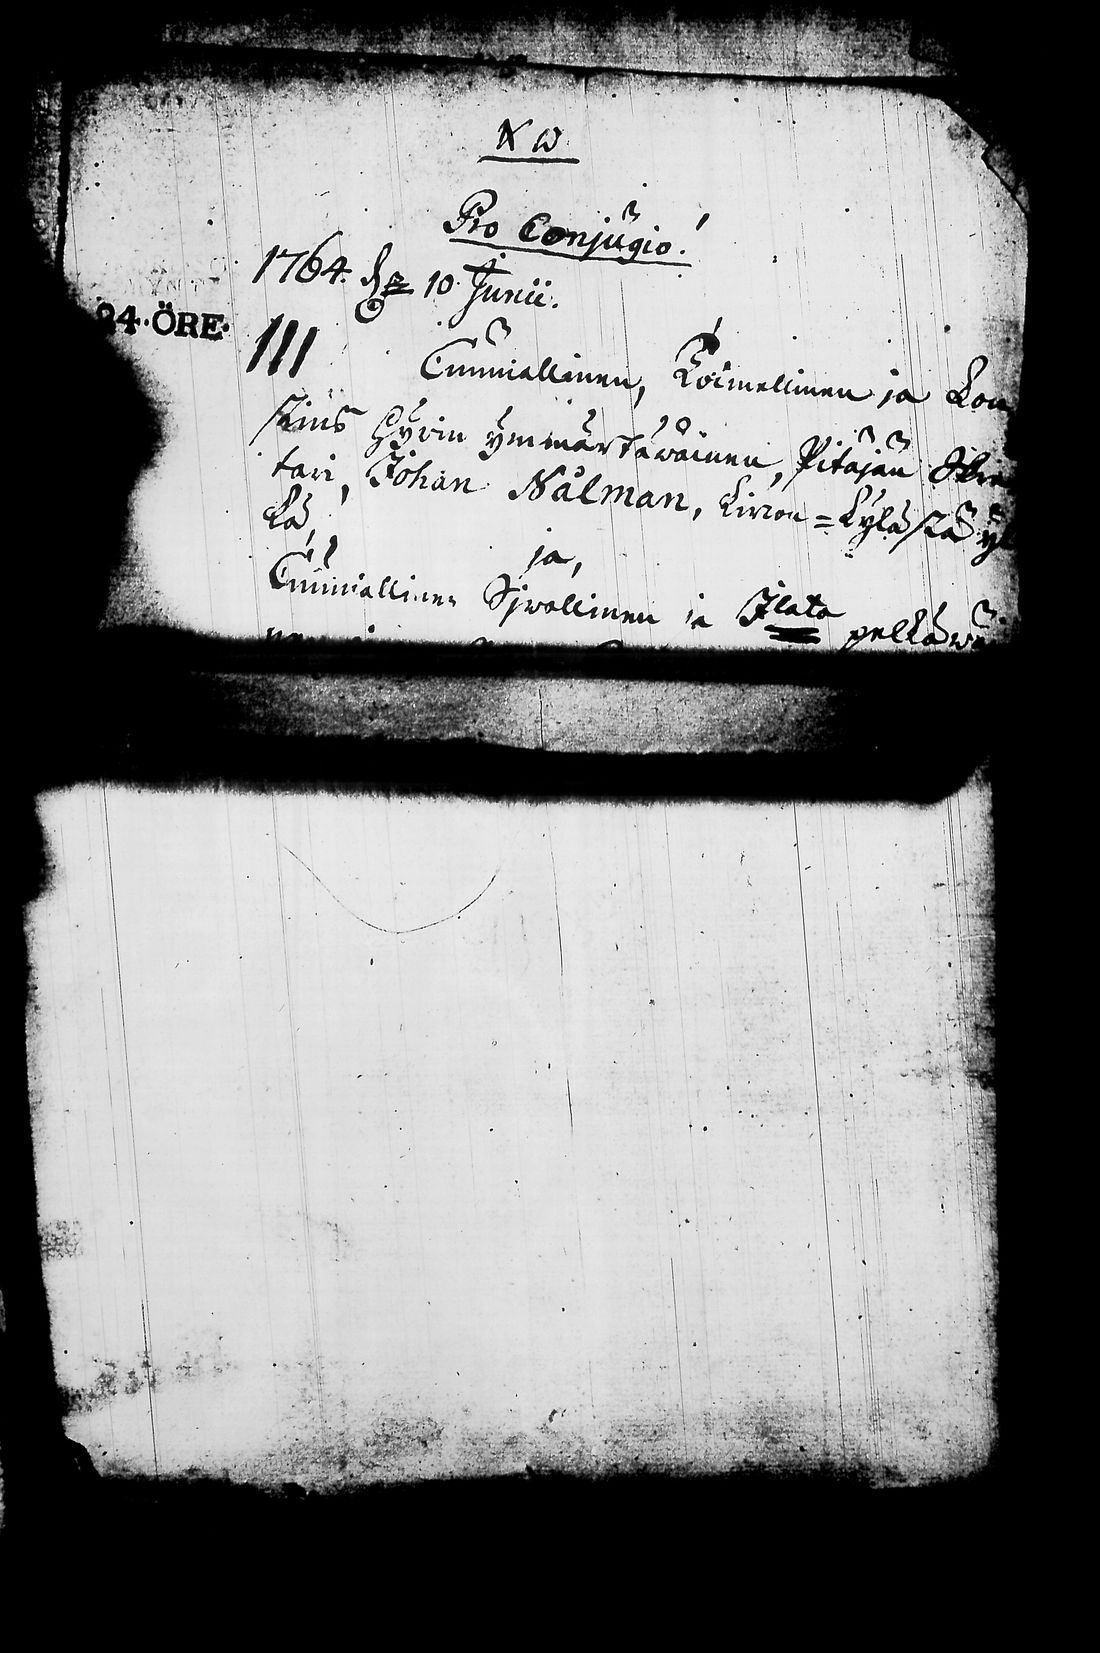 N W
Pro Conjugio!
1764. d. 10 Junii.
24·ÖRE·
III Cunniallinen, Toimellinen ja Kon
stins Hywin ymmärtäwäinen, Pitäjän Skre
tari, Johan Nålman, Kircon=Kylästä yl
kä,
ja,
Cunniallinen Sjwellinen ja Jlata pelkäwä